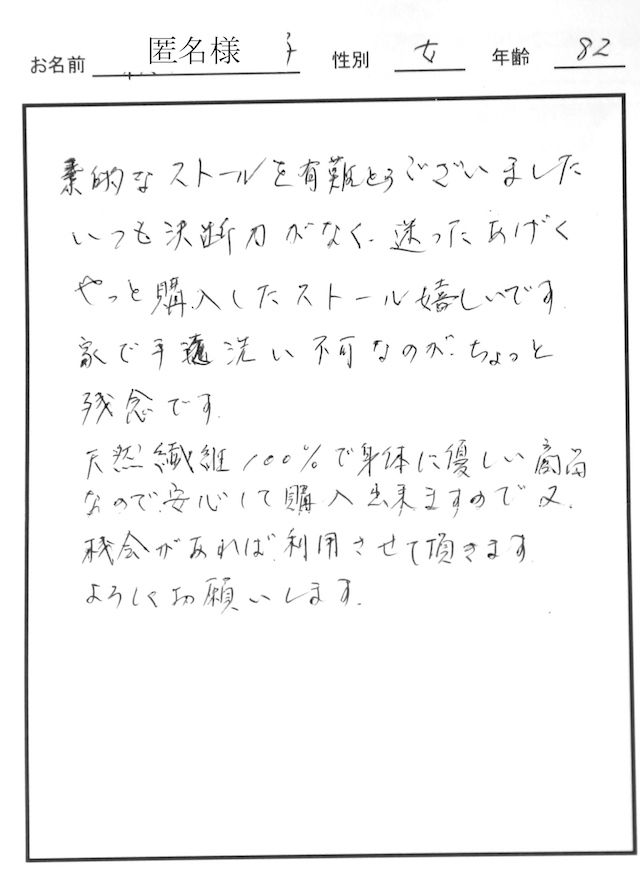 お名前 匿名様 子 性別 女 年齢 82
素的なストールを有難とうございました
いつも決断力がなく、迷ったあげく
やっと購入したストール嬉しいです。
家で手洗い不可なのが、ちょっと
残念です。
天然繊維100%で身体に優しい商品
なので、安心して購入出来ますので又、
機会があれば、利用させて頂きます。
よろしくお願いします。